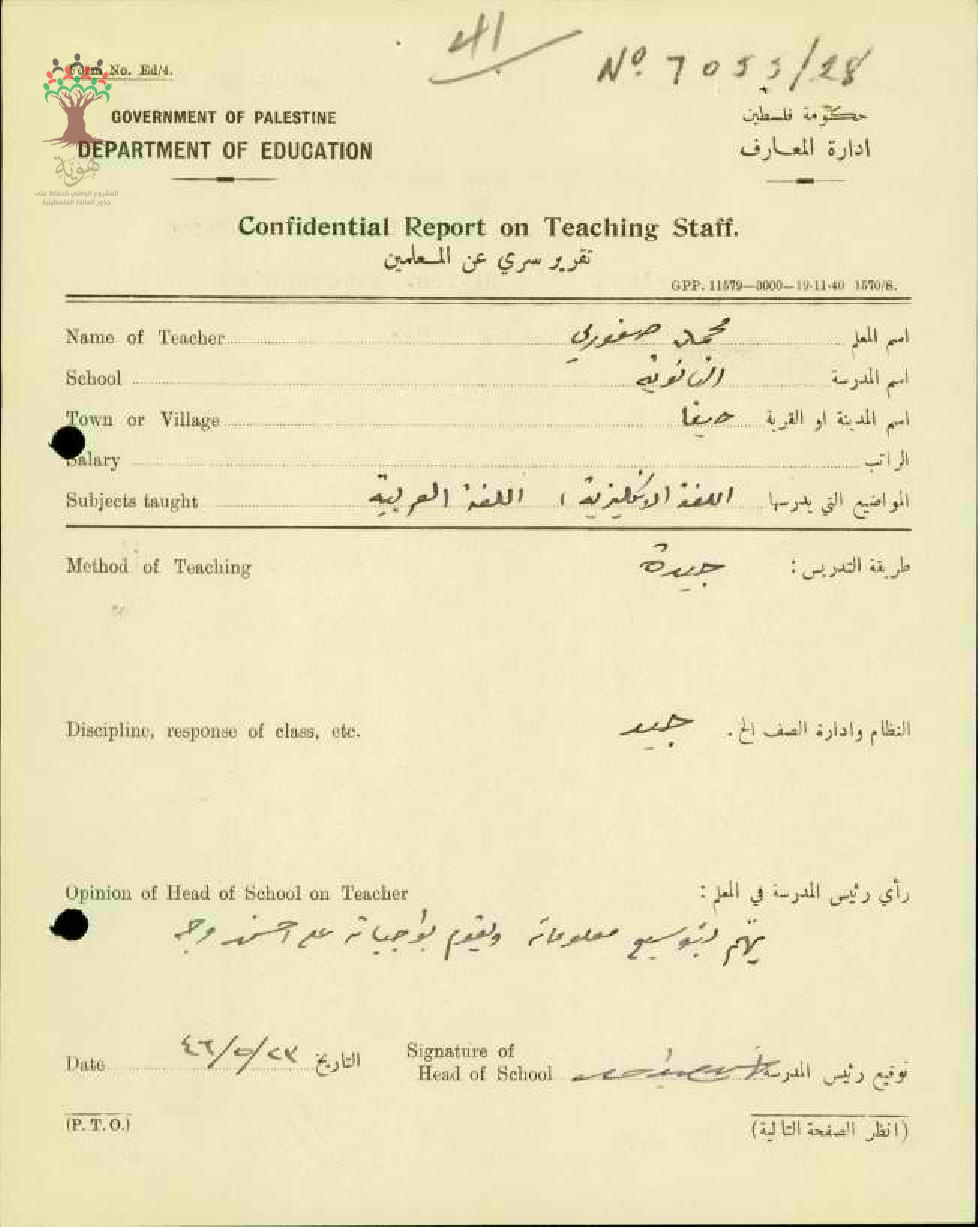 41
Nº 7055/28
Form No. Ed/4.
GOVERNMENT OF PALESTINE
حكومة فلسطين
DEPARTMENT OF EDUCATION
ادارة المعارف
هوية
المشروع الوطني للحفاظ على
جذور العائلة الفلسطينية
Confidential Report on Teaching Staff.
تقرير سري عن المعلمين
GPP. 11579—3000—19-11-40 1570/S.
Name of Teacher محمد صفوري اسم المعلم
School الثانوية اسم المدرسة
Town or Village حيفا اسم المدينة او القرية
Salary الراتب
Subjects taught اللغة الانكليزية ، اللغة العربية المواضيع التي يدرسها
Method of Teaching جيدة طريقة التدريس :
Discipline, response of class, etc. جيد النظام وادارة الصف الخ.
Opinion of Head of School on Teacher رأي رئيس المدرسة في المعلم :
يهتم بتوسيع معلوماته ويقوم بواجباته على احسن وجه
Date ٢٣/٥/٤٦ التاريخ
Signature of
Head of School توقيع رئيس المدرسة
(P. T. O.) (انظر الصفحة التالية)